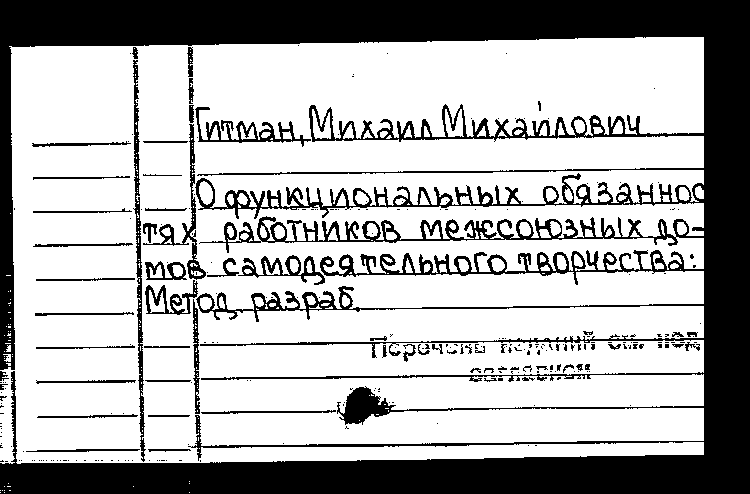 Гитман, Михаил Михайлович
О функциональных обязаннос
тях работников межсоюзных до-
мов самодеятельного творчества:
Метод. разраб.
Перечень изданий см. под
заглавием